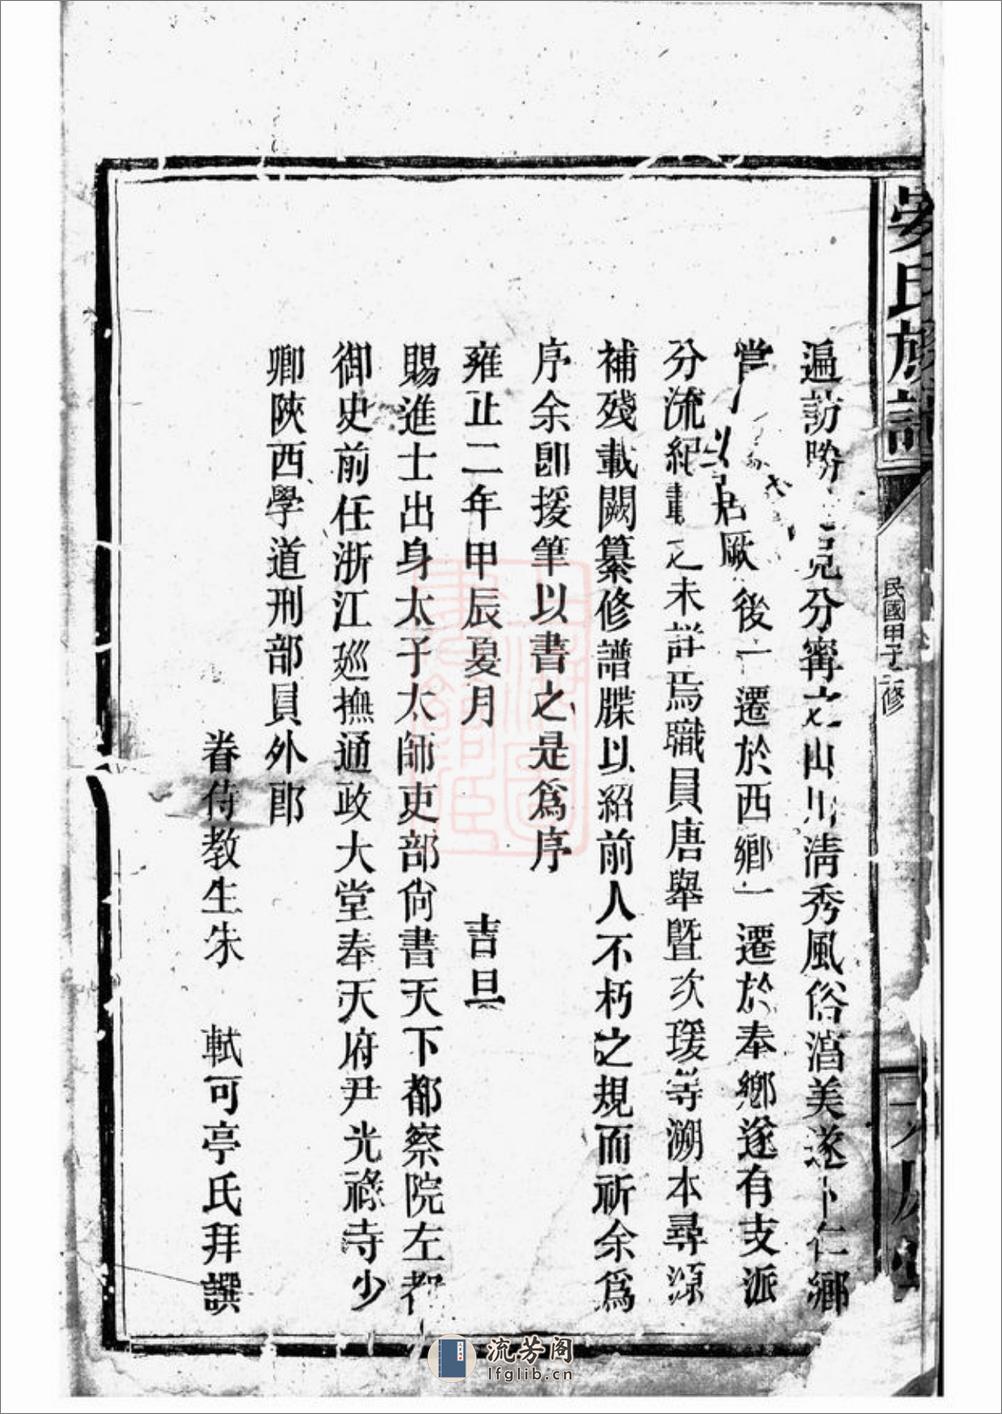 遍訪勝分寧之山川清秀風俗淳美遂卜仁鄉
居厥後一遷於西鄉一遷於奉鄉遂有支派
分流紀載之未詳焉職員唐舉暨次瑗等溯本尋源
補殘載闕纂修譜牒以紹前人不朽之規而祈余爲
序余卽援筆以書之是爲序
雍正二年甲辰夏月 吉旦
賜進士出身太子太師吏部尙書天下都察院左都
御史前任浙江廵撫通政大堂奉天府尹光祿寺少
卿陝西學道刑部員外郎
眷侍教生朱 軾可亭氏拜譔
氏族譜
民國甲子修
流芳阁
lfglib.cn